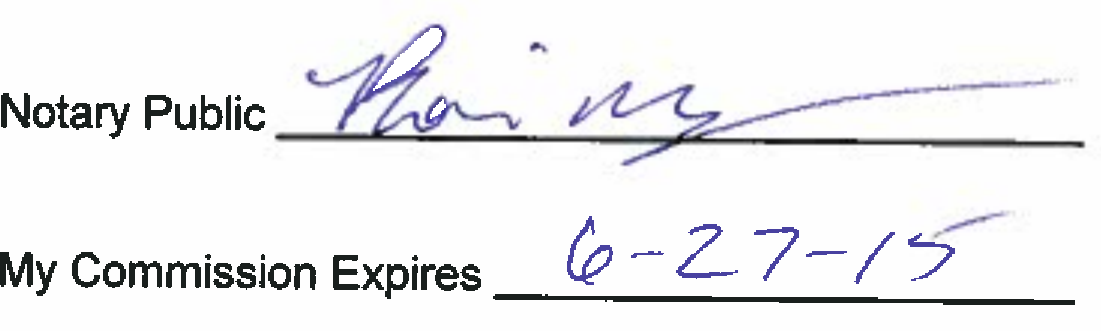 Notary Public
My Commission Expires 6-27-15